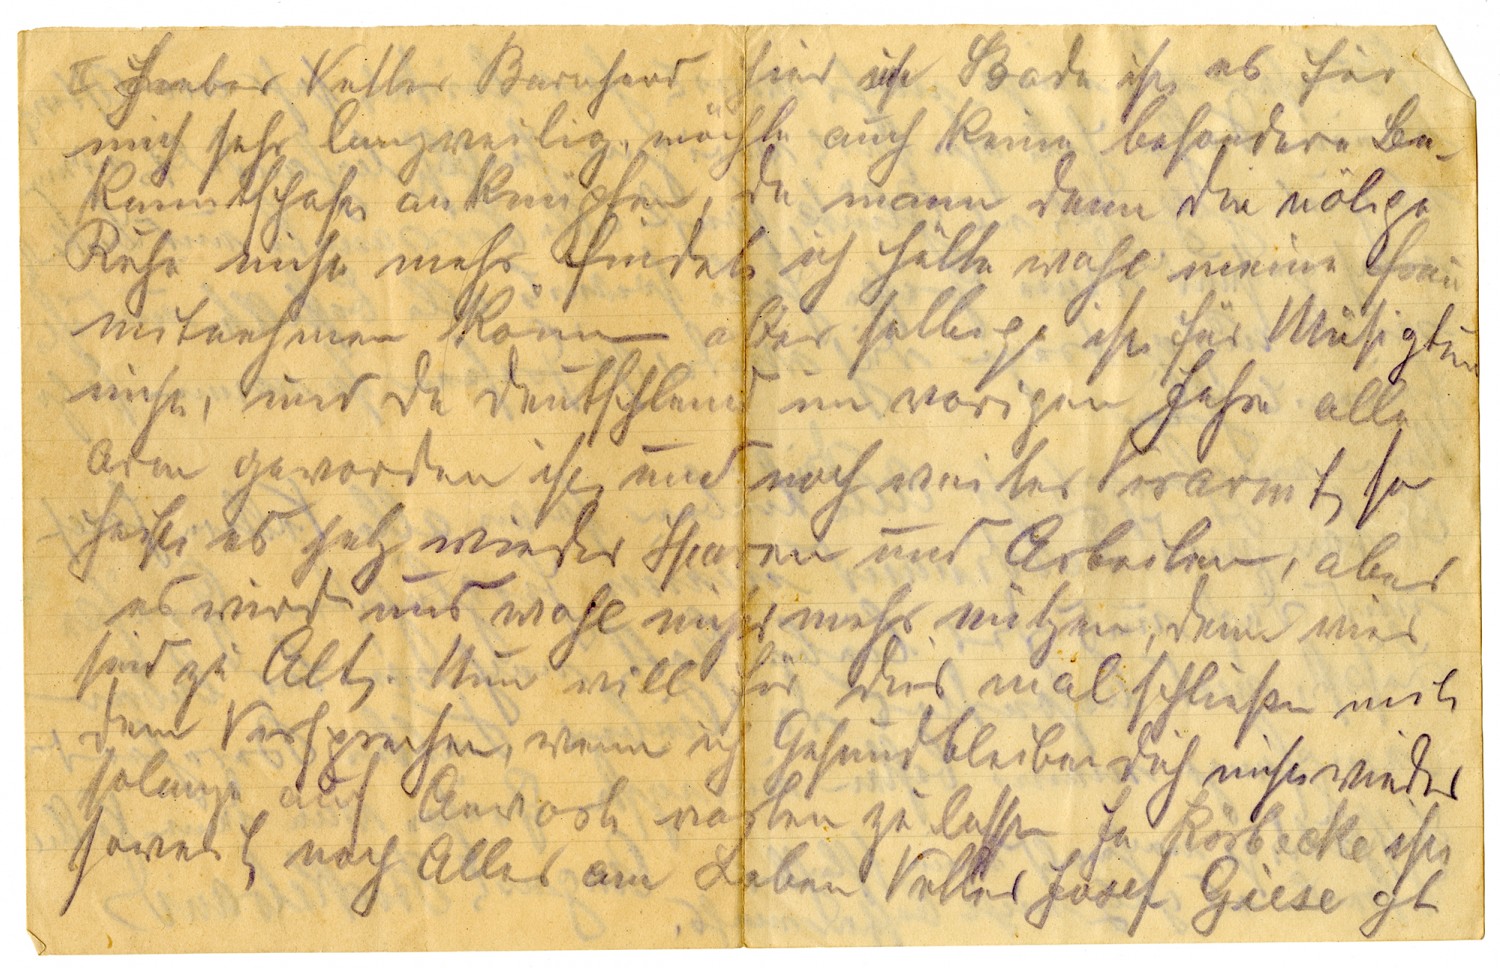 II Lieber Vetter Bernhard hier im Bade ist es für
mich sehr langweilig, möchte auch keine besondere Be-
kanntschaft anknüpfen, da mann dann die nötige
Ruhe nicht mehr findet, ich hätte wohl meine Frau
mitnehmen könn aber selbige ist für Müsigtun
nicht, und da Deutschland im vorigen Jahre alle
arm geworden ist, und noch weiter verarmt, so
heist es jetz wieder Sparen und Arbeiten, aber
es wird uns wohl nicht mehr nützen, denn wier
sind zu Alt. Nun will für dies mal schließen mit
dem Versprechen, wenn ich Gesund bleibe dich nicht wieder
solange auf Anwort warten zu lassen In Körbecke ist
soweit noch Alles am Leben Vetter Josef Giese gt